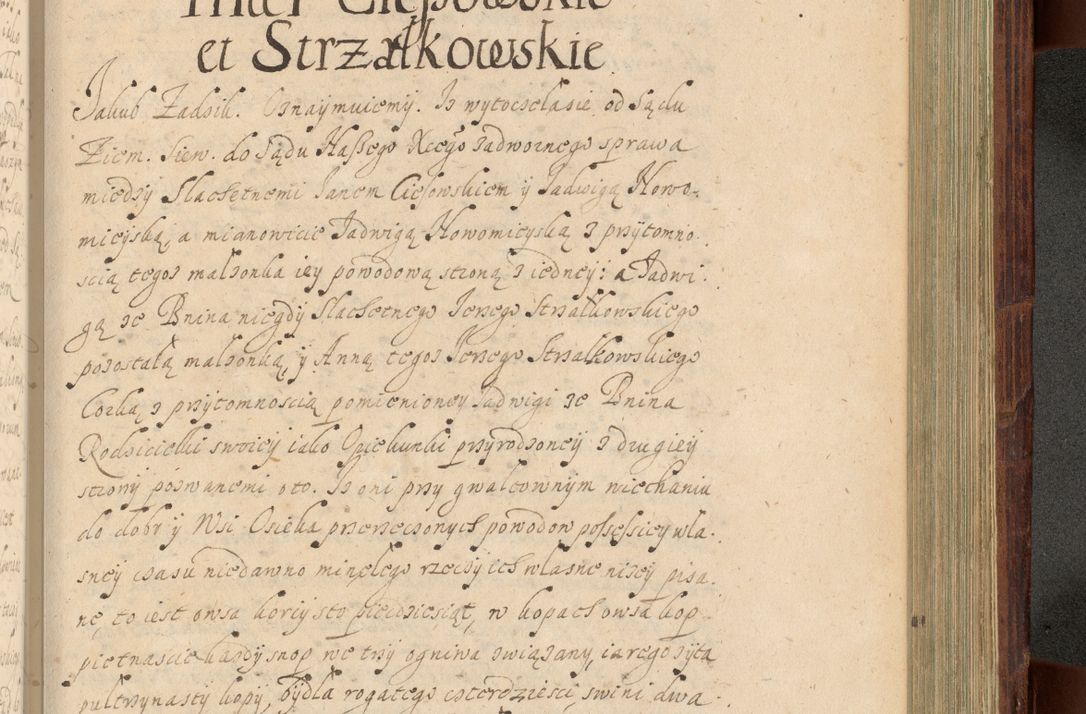 Inter Ciesowskie
et Strzałkowskie
Jakub Zadzik. Oznaymuiemÿ. Iz wytoczelasie od Sądu
Ziem. Siew. do Sądu Naszego Xcego zadwornego sprawa
miedzÿ Slachetnemi Janem Ciesowskiem ÿ Jadwigą Nowo-
mieÿską, a mianowicie Jadwigą Nowomieyską z przÿtomno-
scią tegoz małzonka ieÿ powodową stroną z iedneÿ: a Jadwi-
gą ze Bnina niegdÿ Slachetnego Jerzego Strzałkowskiego
pozostałą małzonką, ÿ Anną tegoz Jerzego Strzałkowskiego
Corką z przÿtomnoscią pomienioneÿ Jadwigi ze Bnina
Rodzicielki swoieÿ iako Opiekunki przÿrodzoneÿ z drugieÿ
stronÿ pozwanemi oto. Iz oni przÿ gwałtownÿm wiechaniu
do dobr ÿ Wsi Osieka przerzeczonÿch powodow possessieÿ wla-
sneÿ czasu niedawno minęłego rzeczÿ ich własne nizeÿ pisa-
ne, to iest owsa korcÿ sto piecdziesiąt, w kopach owsa kop
pietnascie kazdÿ snop we trzÿ ogniwa związanÿ, iarego zÿta
pultrzÿnastÿ kopÿ, bÿdla rogatego czterdziesci, swini dwa